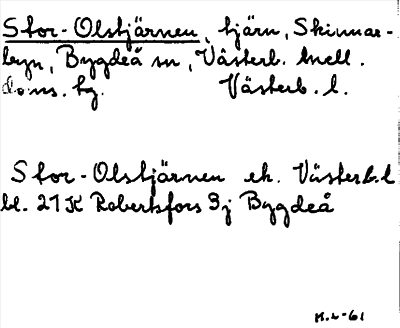 Stor-Olstjärnen, tjärn, Skinnar-
byn, Bygdeå sn, Västerb. mell.
doms. hg. Västerb. l.
Stor-Olstjärnen ek. Västerb. l
bl. 21 K Robertsfors 3j Bygdeå